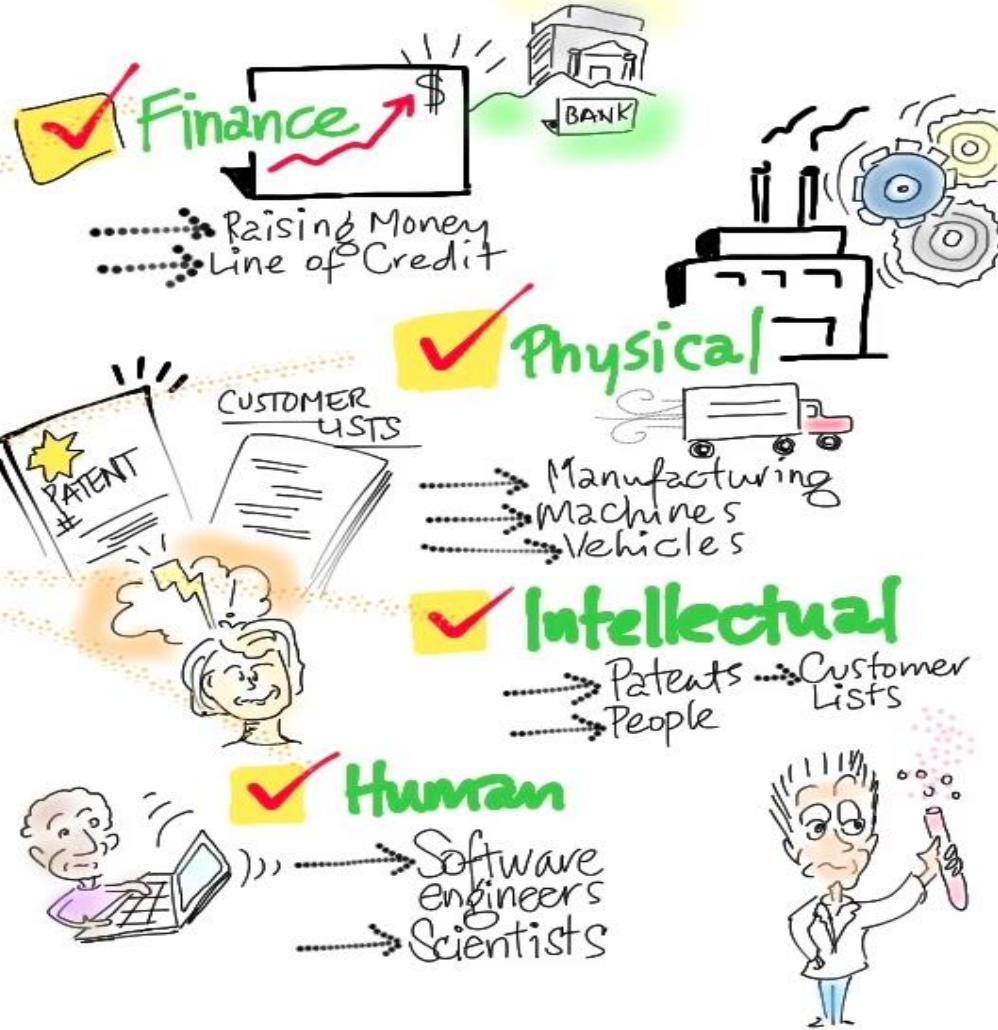 Finance
$
BANK
Raising Money
Line of Credit
Physical
CUSTOMER
LISTS
PATENT
#
Manufacturing
Machines
Vehicles
Intellectual
Patents Customer
Lists
People
Human
Software
engineers
Scientists